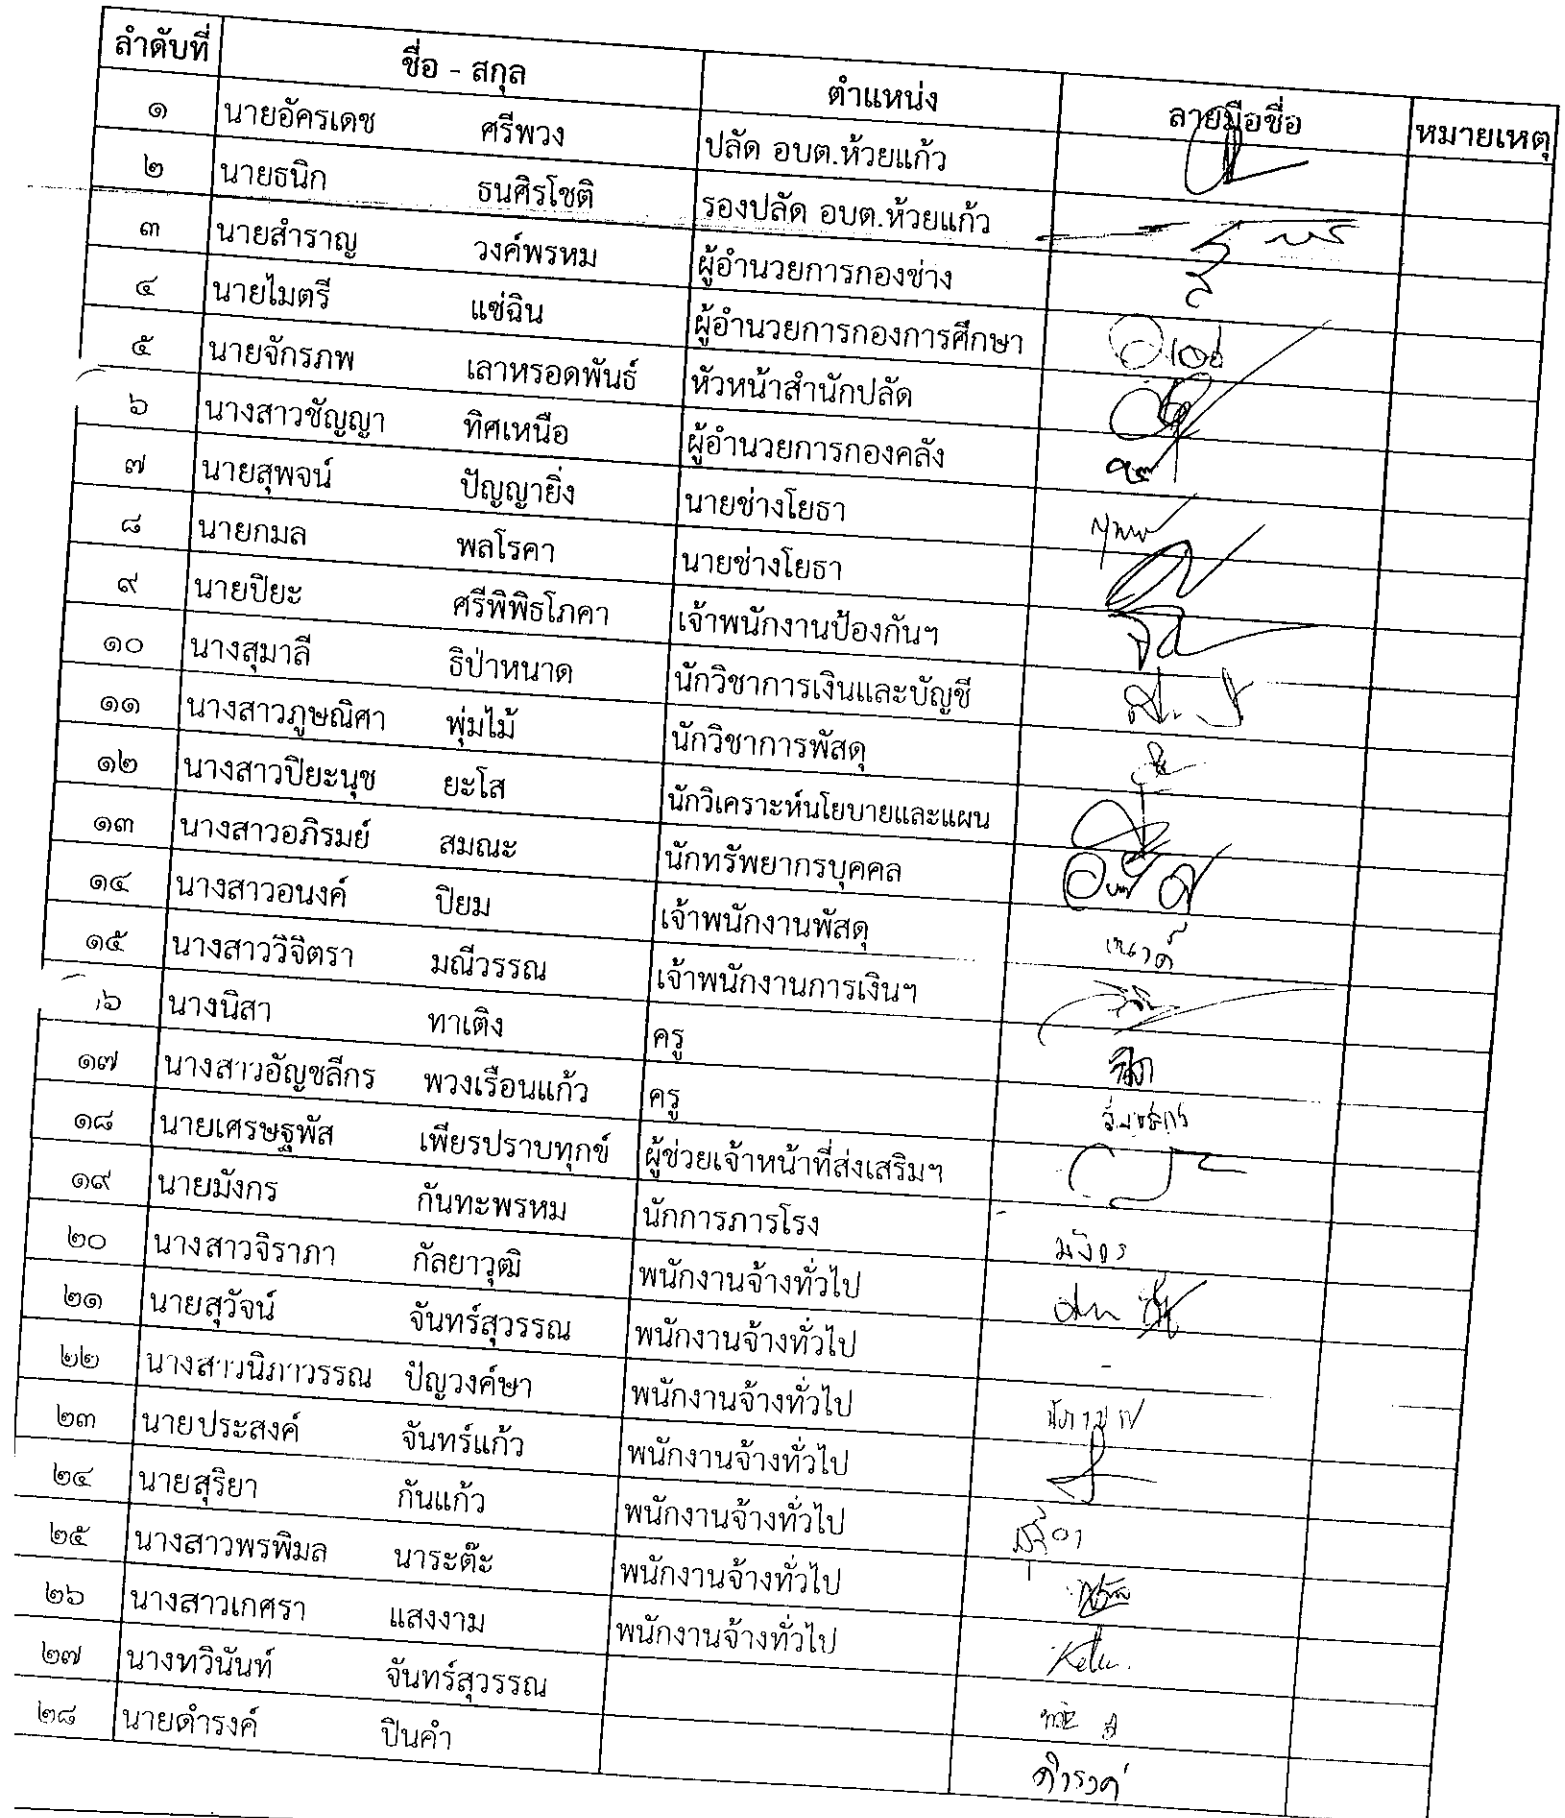 ลำดับที่ ชื่อ - สกุล ตำแหน่ง ลายมือชื่อ หมายเหตุ
๑ นายอัครเดช ศรีพวง ปลัด อบต.ห้วยแก้ว
๒ นายธนิก ธนศิรโชติ รองปลัด อบต.ห้วยแก้ว
๓ นายสำราญ วงค์พรหม ผู้อำนวยการกองช่าง
๔ นายไมตรี แซ่ฉิน ผู้อำนวยการกองการศึกษา
๕ นายจักรภพ เลาหรอดพันธ์ หัวหน้าสำนักปลัด
๖ นางสาวชัญญา ทิศเหนือ ผู้อำนวยการกองคลัง
๗ นายสุพจน์ ปัญญายิ่ง นายช่างโยธา
๘ นายกมล พลโรคา นายช่างโยธา
๙ นายปิยะ ศรีพิพิธโภคา เจ้าพนักงานป้องกันฯ
๑๐ นางสุมาลี ธิป่าหนาด นักวิชาการเงินและบัญชี
๑๑ นางสาวภูษณิศา พุ่มไม้ นักวิชาการพัสดุ
๑๒ นางสาวปิยะนุช ยะโส นักวิเคราะห์นโยบายและแผน
๑๓ นางสาวอภิรมย์ สมณะ นักทรัพยากรบุคคล
๑๔ นางสาวอนงค์ ปิยม เจ้าพนักงานพัสดุ
๑๕ นางสาววิจิตรา มณีวรรณ เจ้าพนักงานการเงินฯ
๖ นางนิสา ทาเติง ครู
๑๗ นางสาวอัญชลีกร พวงเรือนแก้ว ครู
๑๘ นายเศรษฐพัส เพียรปราบทุกข์ ผู้ช่วยเจ้าหน้าที่ส่งเสริมฯ
๑๙ นายมังกร กันทะพรหม นักการภารโรง มังกร
๒๐ นางสาวจิราภา กัลยาวุฒิ พนักงานจ้างทั่วไป
๒๑ นายสุวัจน์ จันทร์สุวรรณ พนักงานจ้างทั่วไป -
๒๒ นางสาวนิภาวรรณ ปัญวงค์ษา พนักงานจ้างทั่วไป
๒๓ นายประสงค์ จันทร์แก้ว พนักงานจ้างทั่วไป
๒๔ นายสุริยา กันแก้ว พนักงานจ้างทั่วไป
๒๕ นางสาวพรพิมล นาระต๊ะ พนักงานจ้างทั่วไป
๒๖ นางสาวเกศรา แสงงาม พนักงานจ้างทั่วไป
๒๗ นางทวินันท์ จันทร์สุวรรณ
๒๘ นายดำรงค์ ปินคำ ดำรงค์